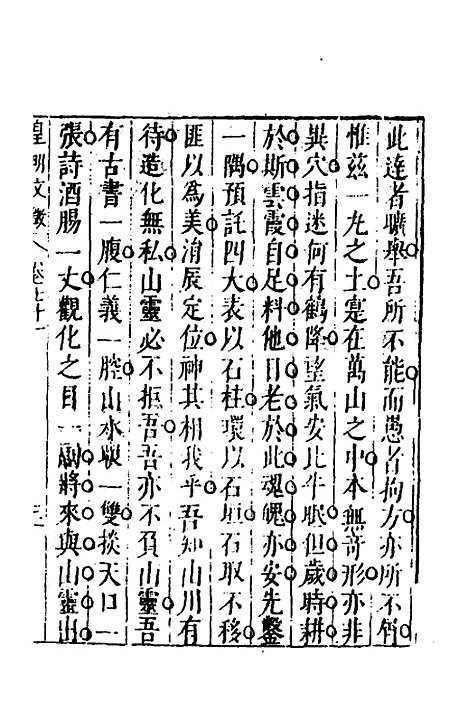 此達者曠舉吾所不能而愚者拘方亦所不屑
惟茲一丸之土寔在萬山之中本無竒形亦非
異穴指迷何有鶴降望氣安比牛眠但歲時耕
於斯雲霞自足料他日老於此魂魄亦安先鑿
一隅預託四大表以石柱環以石垣石取不移
匪以為美消辰定位神其相我乎吾知山川有
待造化無私山靈必不拒吾吾亦不負山靈吾
有古書一腹仁義一腔山水眼一雙談天口一
張詩酒腸一丈觀化之目一副將來與山靈出
皇明文徵 卷七十一